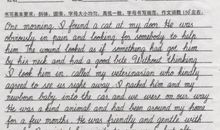 One morning, I found a cat at my door. He was
obviously in pain and looking for somebody to help
him. The wound looked as if something had got him
by his neck and had a good bite. Without thinking,
I took him in called my veterinarian who kindly
agreed to see us right away. I packed him and my
newborn baby into the car and we were on our way.
He was a kind animal and had been around my home
for a few months. He was friendly and gentle with